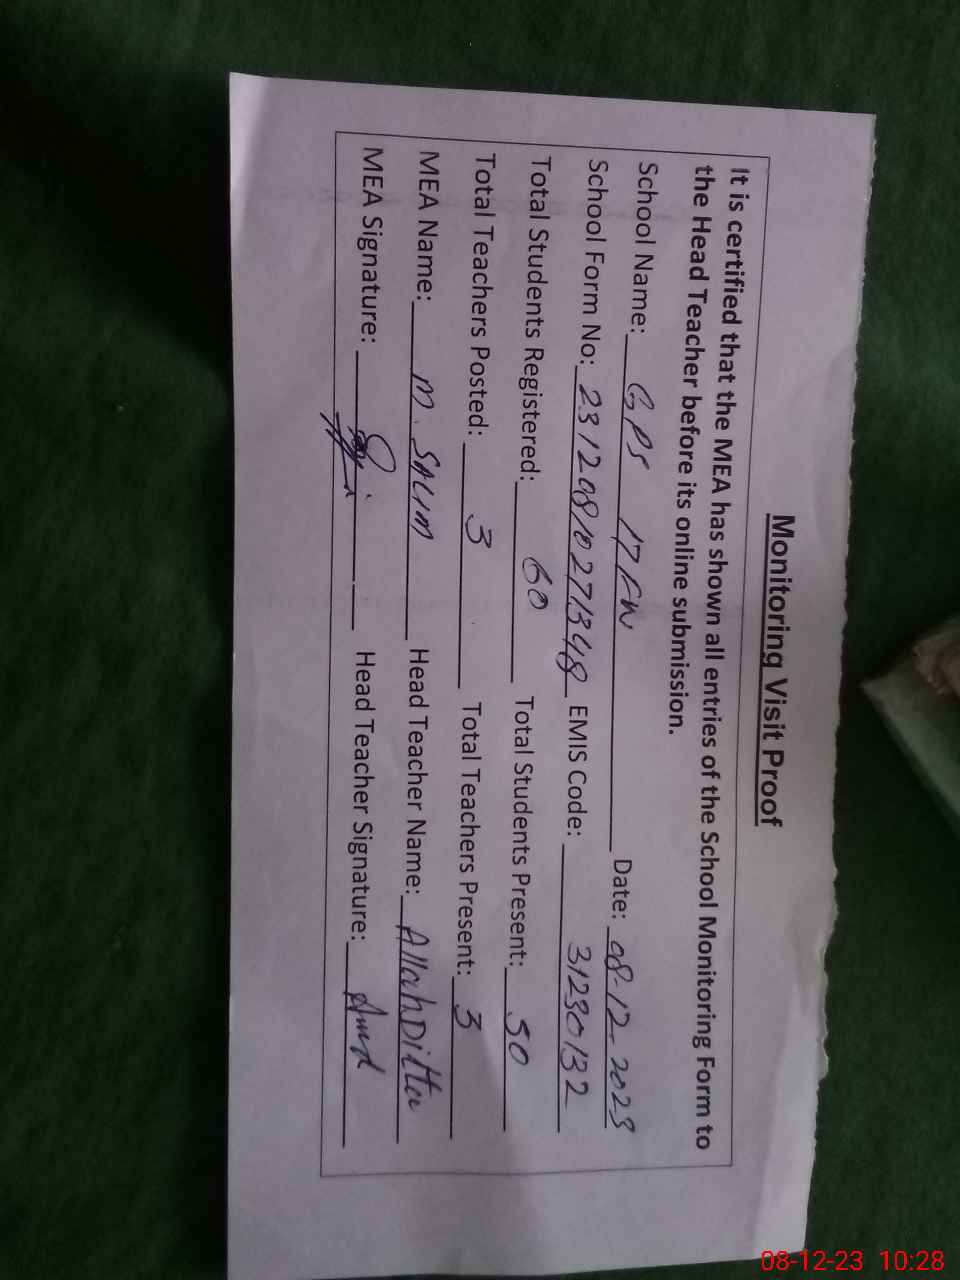 Monitoring Visit Proof
It is certified that the MEA has shown all entries of the School Monitoring Form to
the Head Teacher before its online submission.
School Name: GPS 17 FW Date: 08-12-2023
School Form No: 23120810271348 EMIS Code: 31230132
Total Students Registered: 60 Total Students Present: 50
Total Teachers Posted: 3 Total Teachers Present: 3
MEA Name: M. Salim Head Teacher Name: Allah Ditta
MEA Signature: Head Teacher Signature:
08-12-23 10:28